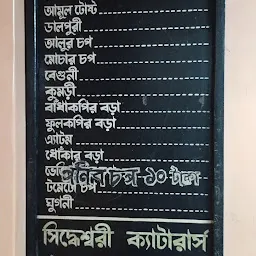 আমূল টোষ্ট
ডালপুরী
আলুর চপ
মোচার চপ
বেগুনী
কুমড়ী
বাঁধাকপির বড়া
ফুলকপির বড়া
এ্যাটম
ধোঁকার বড়া
পনির চপ ১০ টাকা
টমেটো চপ
ঘুগনী
সিদ্ধেশ্বরী ক্যাটারার্স